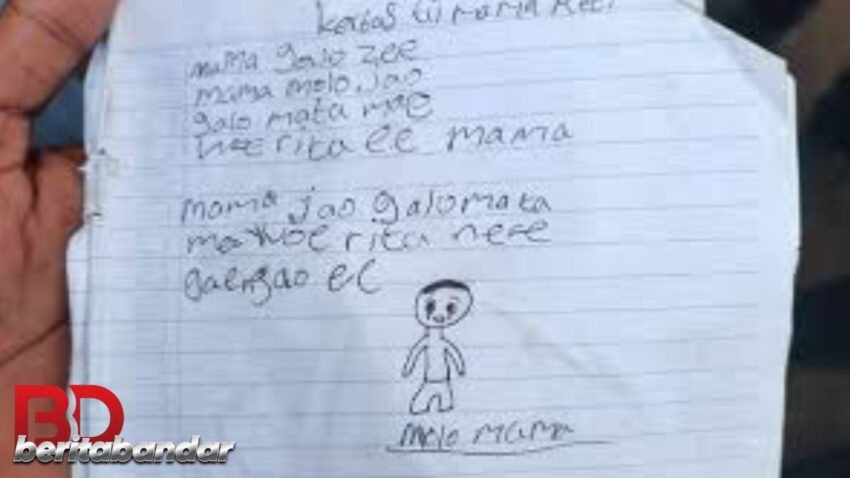 kertas tii mama Reti
mama galo zee
mama molo ja'o
galo mata mae
woe rita ee mama
mama jao galo mata
mae woe rita ne'e
gae ngao ee
molo mama
BD
beritabandar